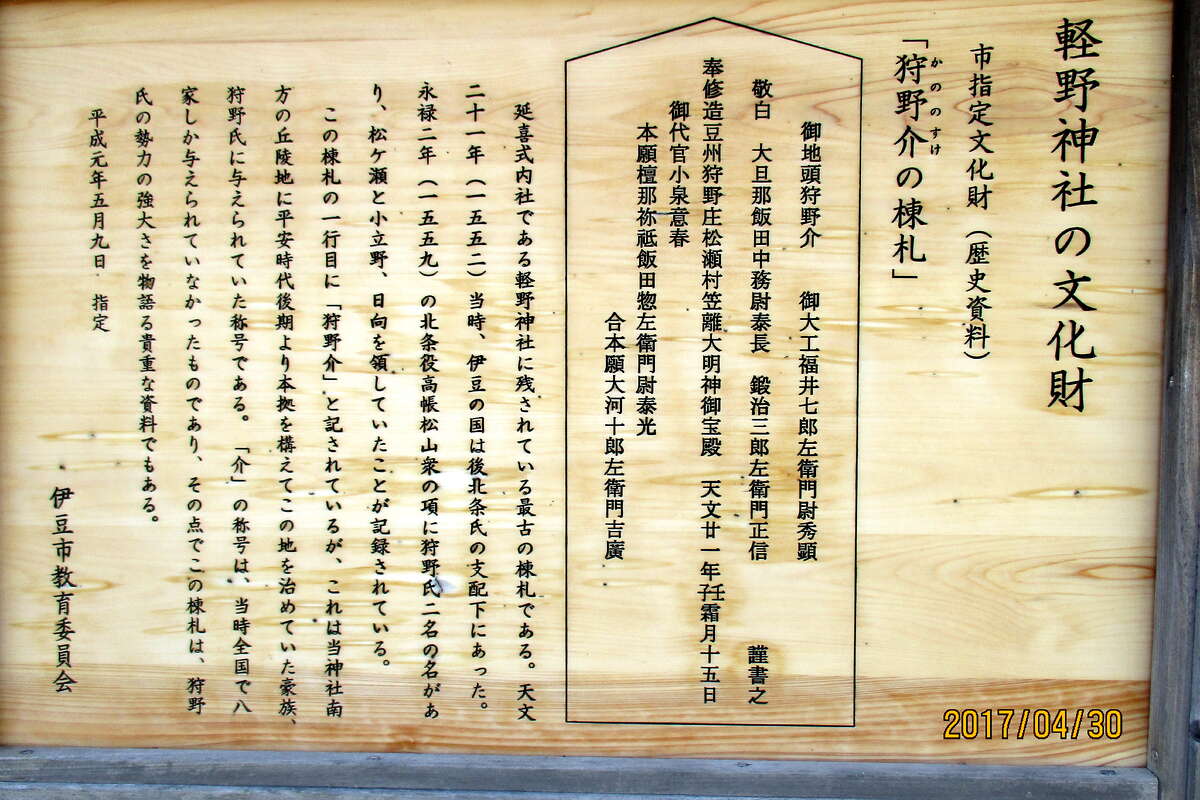 軽野神社の文化財
市指定文化財（歴史資料）
「狩野介の棟札」
かののすけ
御地頭狩野介　御大工福井七郎左衛門尉秀顕
敬白　大旦那飯田中務尉泰長　鍛治三郎左衛門正信　謹書之
奉修造豆州狩野庄松瀬村笠離大明神御宝殿　天文廿一年壬子霜月十五日
御代官小泉意春
本願檀那祢祗飯田惣左衛門尉泰光
合本願大河十郎左衛門吉廣
延喜式内社である軽野神社に残されている最古の棟札である。天文
二十一年（一五五二）当時、伊豆の国は後北条氏の支配下にあった。
永禄二年（一五五九）の北条役高帳松山衆の項に狩野氏二名の名があ
り、松ケ瀬と小立野、日向を領していたことが記録されている。
この棟札の一行目に「狩野介」と記されているが、これは当神社南
方の丘陵地に平安時代後期より本拠を構えてこの地を治めていた豪族、
狩野氏に与えられていた称号である。「介」の称号は、当時全国で八
家しか与えられていなかったものであり、その点でこの棟札は、狩野
氏の勢力の強大さを物語る貴重な資料でもある。
平成元年五月九日　指定
伊豆市教育委員会
2017/04/30